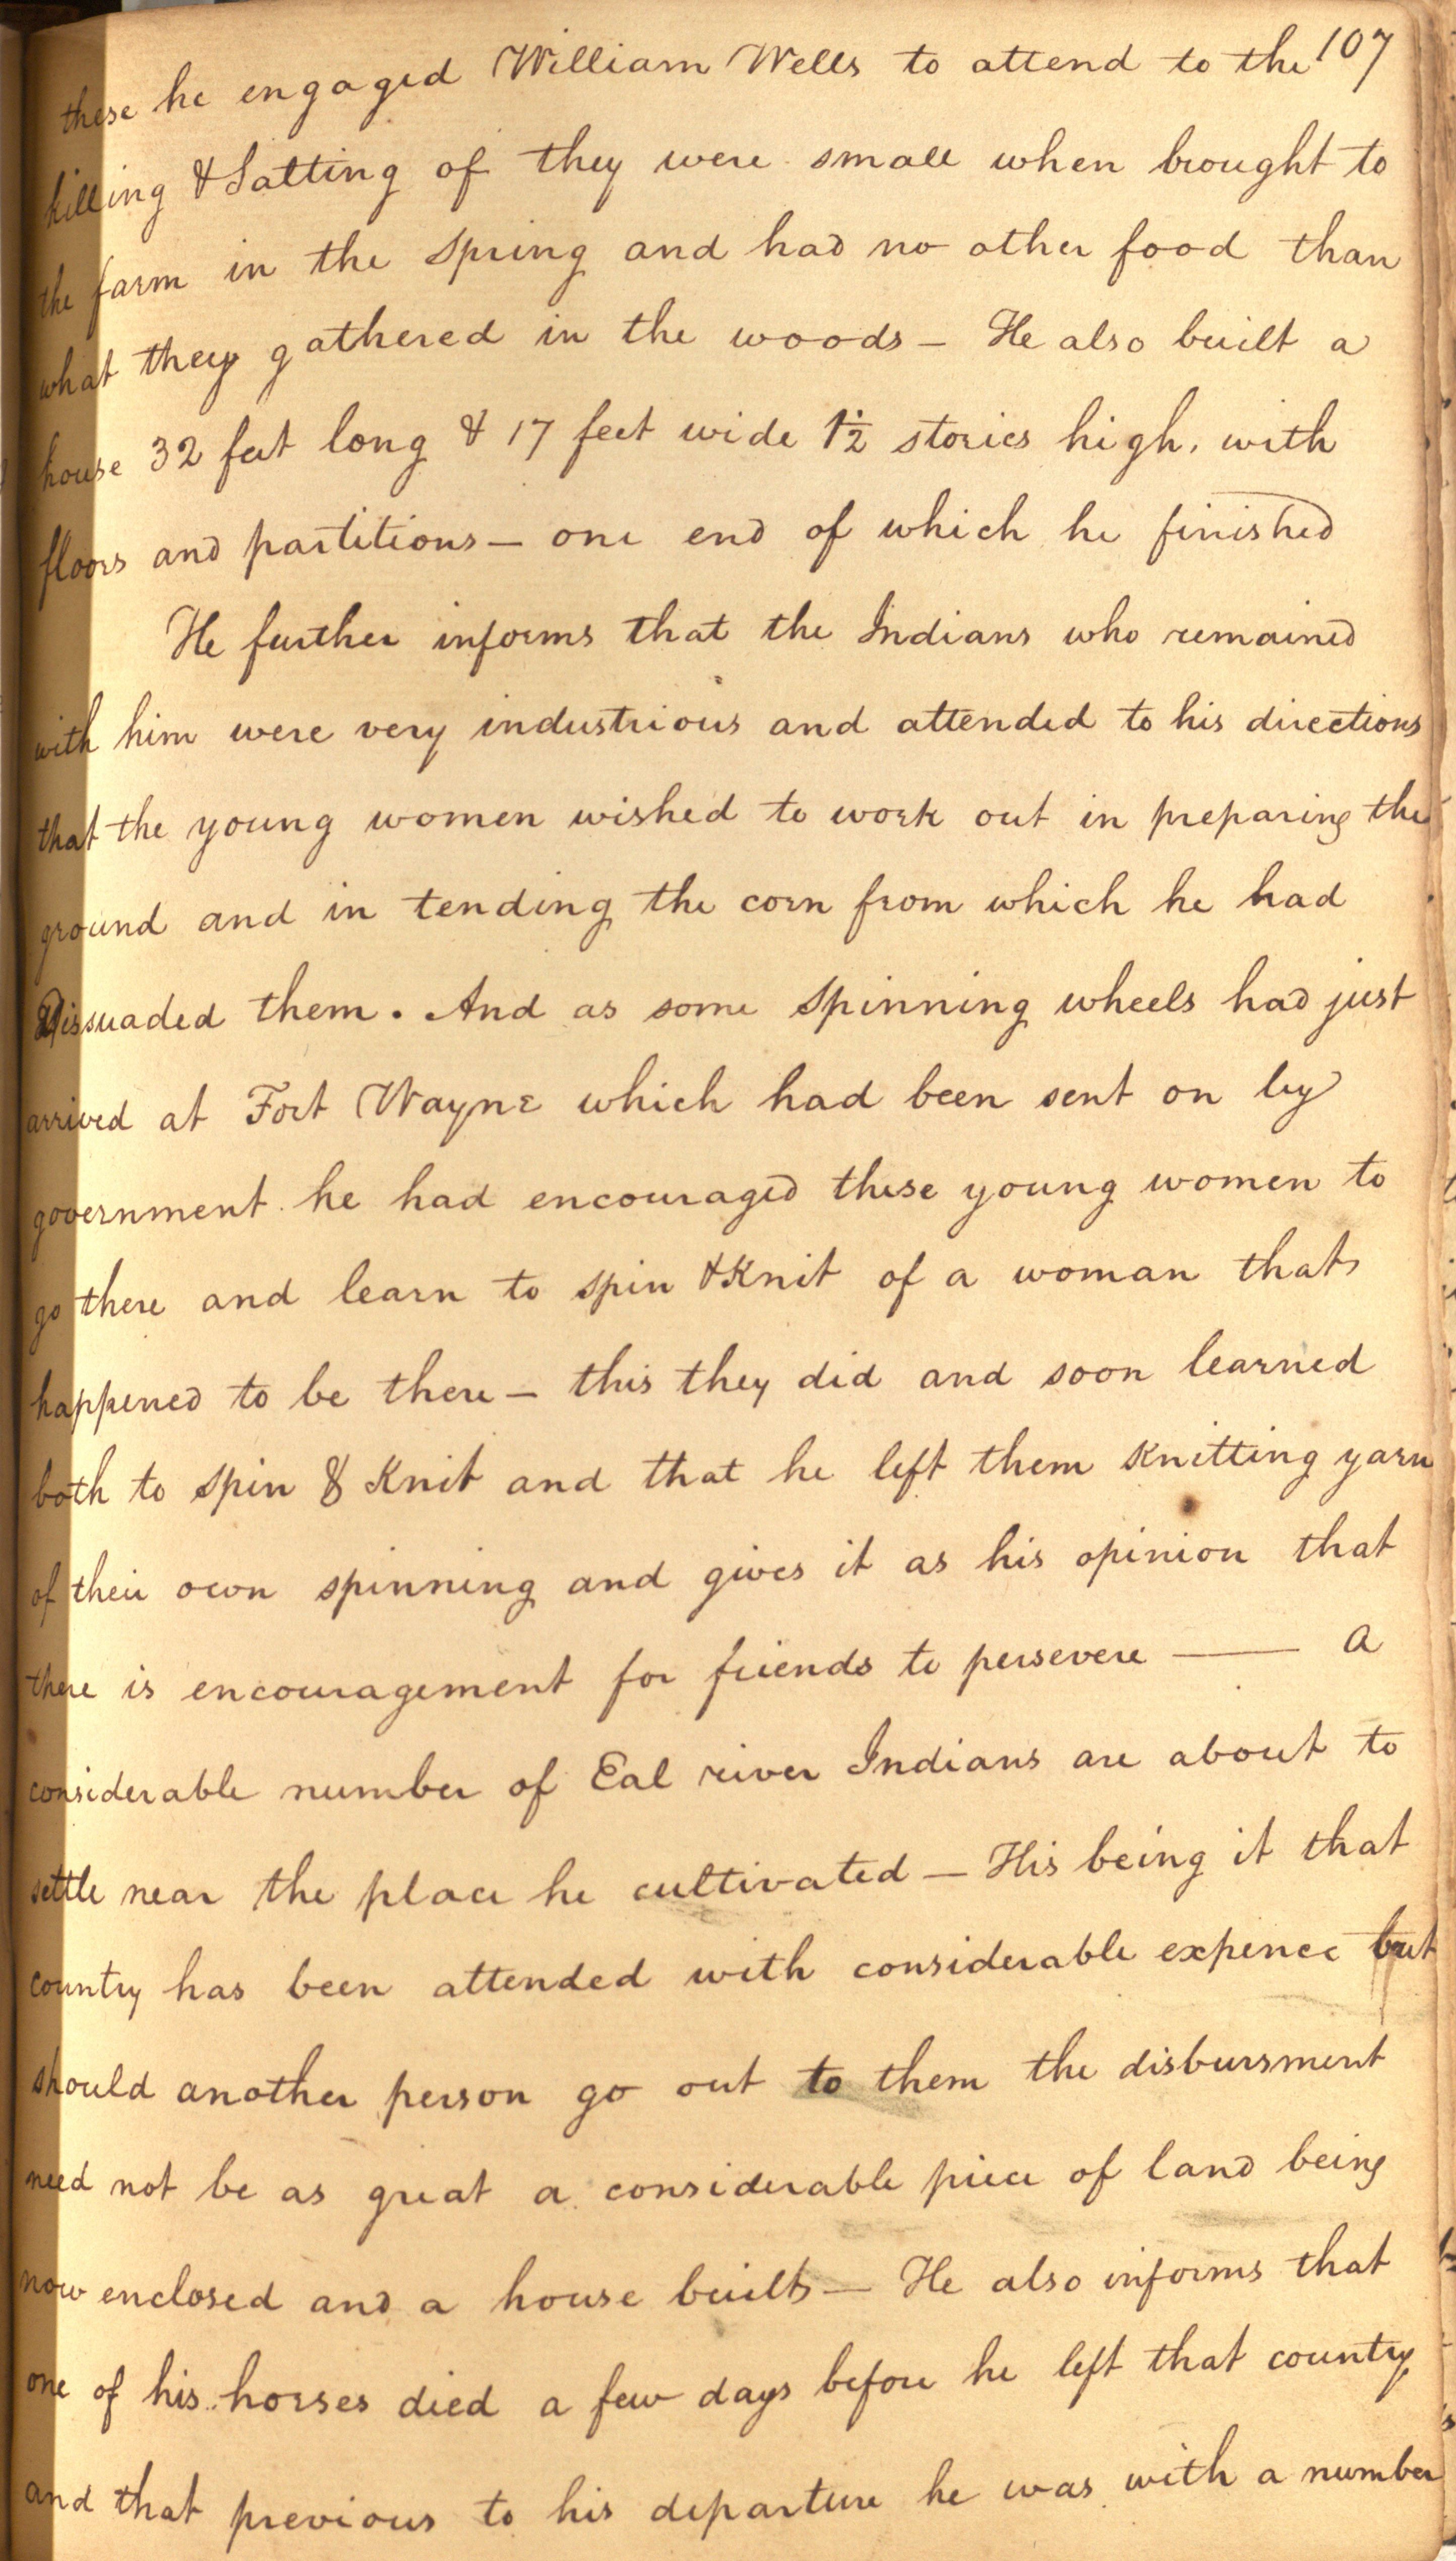 107
these he engaged William Wells to attend to the
killing & Salting of they were small when brought to
the farm in the Spring and had no other food than
what they gathered in the woods – He also built a
house 32 feet long & 17 feet wide 1½ stories high, with
floors and partitions – one end of which he finished
He further informs that the Indians who remained
with him were very industrious and attended to his directions
that the young women wished to work out in preparing the
ground and in tending the corn from which he had
Dissuaded them. And as some Spinning wheels had just
arrived at Fort Wayne which had been sent on by
government he had encouraged these young women to
go there and learn to spin & Knit of a woman that
happened to be there – this they did and soon learned
both to spin & Knit and that he left them Knitting yarn
of their own spinning and gives it as his opinion that
there is encouragement for friends to persevere —— A
considerable number of Eal river Indians are about to
settle near the place he cultivated – His being it that
country has been attended with considerable expence but
should another person go out to them the disbursment
need not be as great a considerable piece of land being
now enclosed and a house built – He also informs that
one of his horses died a few days before he left that country
and that previous to his departure he was with a number